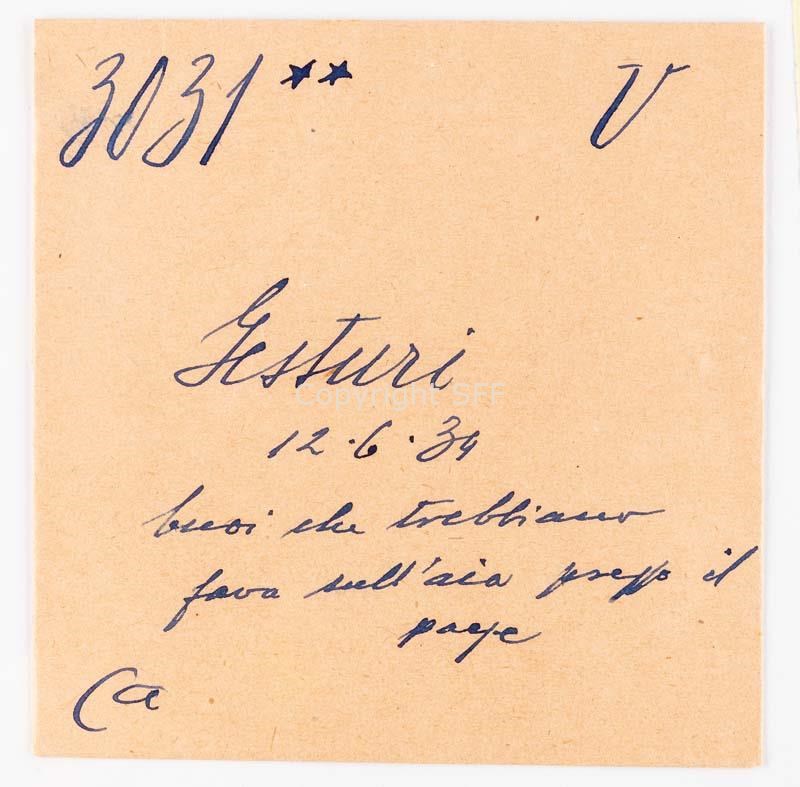 3031 ** V
Gesturi
Copyright SFF
12.6.34
buoi che trebbiano
fava sull'aia presso il
paese
Ca